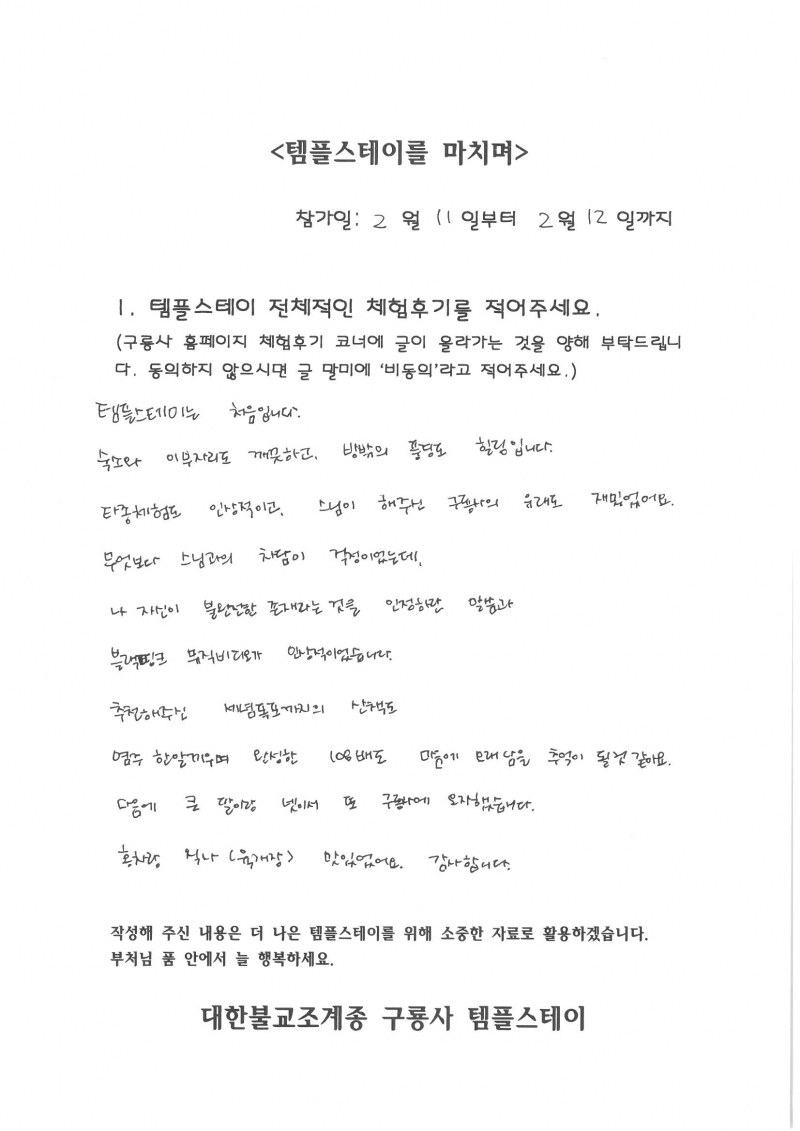 <템플스테이를 마치며>
참가일: 2 월 11 일부터 2월 12 일까지
1. 템플스테이 전체적인 체험후기를 적어주세요.
(구룡사 홈페이지 체험후기 코너에 글이 올라가는 것을 양해 부탁드립니
다. 동의하지 않으시면 글 말미에 '비동의'라고 적어주세요.)
템플스테이는 처음입니다.
숙소와 이부자리도 깨끗하고, 방밖의 풍경도 힐링입니다.
타종체험도 인상적이고, 스님이 해주신 구룡사의 유래도 재밌었어요.
무엇보다 스님과의 차담이 걱정이었는데,
나 자신이 불완전한 존재라는 것을 인정하란 말씀과
블랙핑크 뮤직비디오가 인상적이었습니다.
추천해주신 세렴폭포까지의 산책도
염주 한알끼우며 완성한 108배도 마음에 오래 남을 추억이 될것 같아요.
다음에 큰 딸이랑 넷이서 또 구룡사에 오자했습니다.
홍차랑 저녁 (육개장) 맛있었어요. 감사합니다.
작성해 주신 내용은 더 나은 템플스테이를 위해 소중한 자료로 활용하겠습니다.
부처님 품 안에서 늘 행복하세요.
대한불교조계종 구룡사 템플스테이